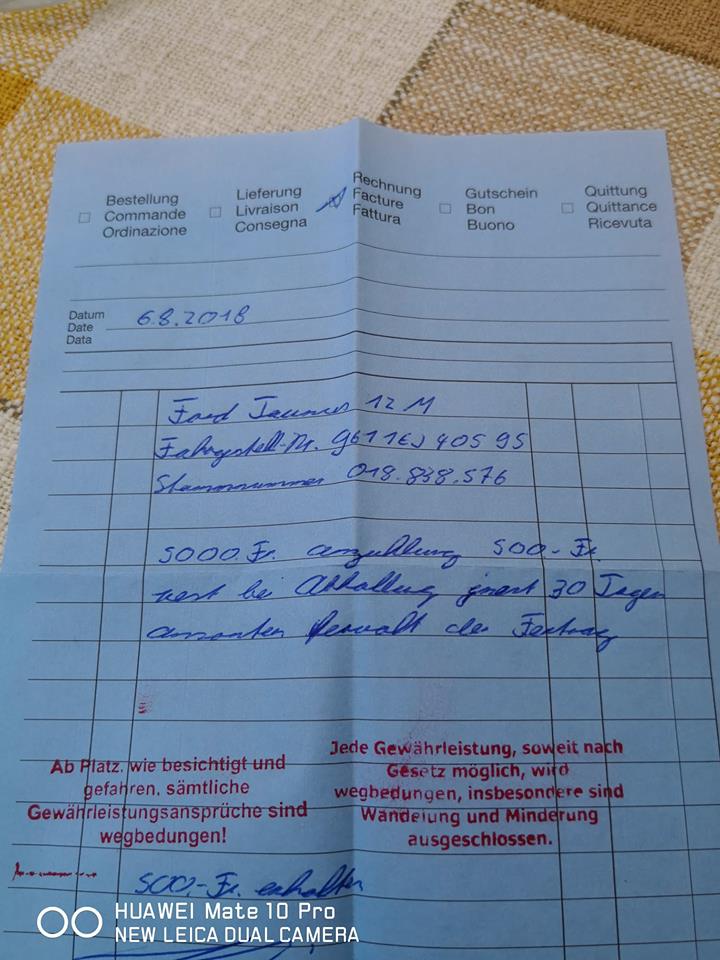 Bestellung
Commande
Ordinazione
Lieferung
Livraison
Consegna
Rechnung
Facture
Fattura
Gutschein
Bon
Buono
Quittung
Quittance
Ricevuta
Datum
Date
Data
6.8.2018
Ford Taunus 12 M
Fahrgstell-Nr. 9611EJ40595
Stammnummer 018.838.576
5000.Fr. anzahlung 500.-Fr.
rest bei Abhollung 30 Tagen
ansonsten der
Ab Platz, wie besichtigt und
gefahren, sämtliche
Gewährleistungsansprüche sind
wegbedungen!
Jede Gewährleistung, soweit nach
Gesetz möglich, wird
wegbedungen, insbesondere sind
Wandelung und Minderung
ausgeschlossen.
500.-Fr. erhalten
HUAWEI Mate 10 Pro
NEW LEICA DUAL CAMERA